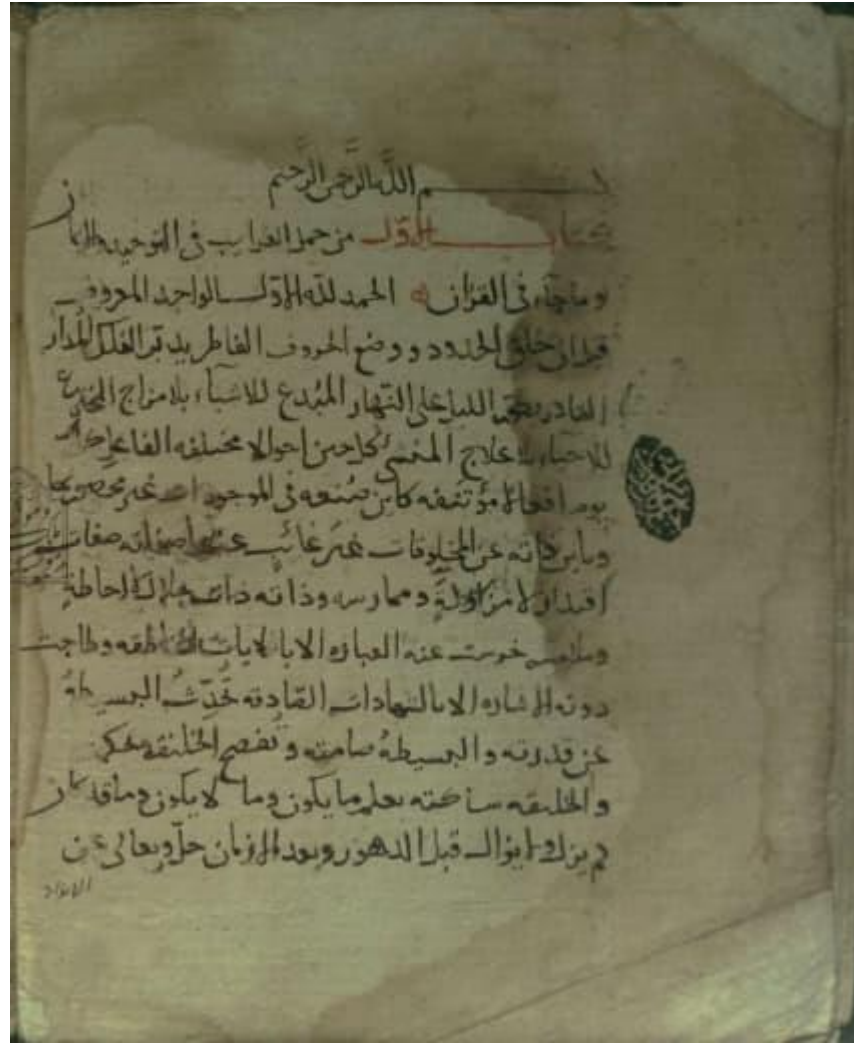 بسم الله الرحمن الرحيم
كتاب الاول من جمل الغرايب في التوحيد والايمان
وما جاء في القران الحمد لله الاول الواحد المعروف
قبل ان خلق الحدود ووضع الحروف الفاطر بدقة الفلك المدار
القادر يكور الليل على النهار المبدع للاشياء بلا مزاج المخترع
للاحياء بلا علاج المنشئ كل حين احوالا مختلفه الفاعل كل
يوم افعالا مؤتنفه كاين صنعه في الموجودات غير محصور بها
وباين ذاته عن المخلوقات غير غائب عنها صفاته صفات
اقتدار لا مزاولة وممارسه وذاته ذات جلال لا احاطة
وملامسه خرست عنه العباره الا بالايات الناطقه وطاحت
دونه الاشاره الا بالشهادات الصادقه تحدث البسيطة
عن قدرته والبسيطة صامته وتفصح الخليقه عن
والخليقه ساكته يعلم ما يكون وما لا يكون وما قد كان
لم يزل ولا يزال قبل الدهور وبعد الازمان جل وتعالى عن
الانداد